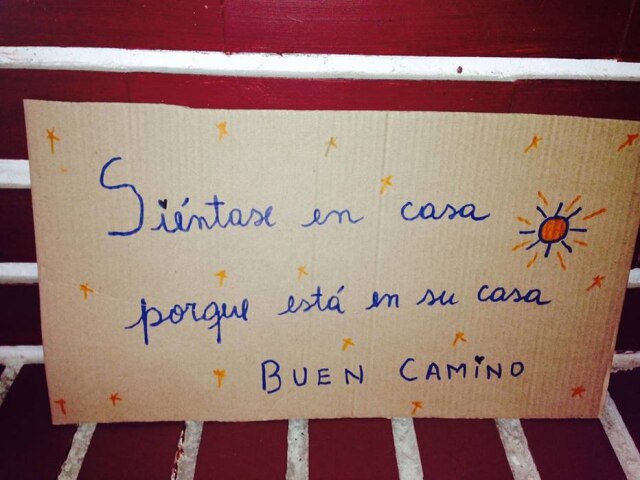 Siéntase en casa
porque está en su casa
BUEN CAMiNO